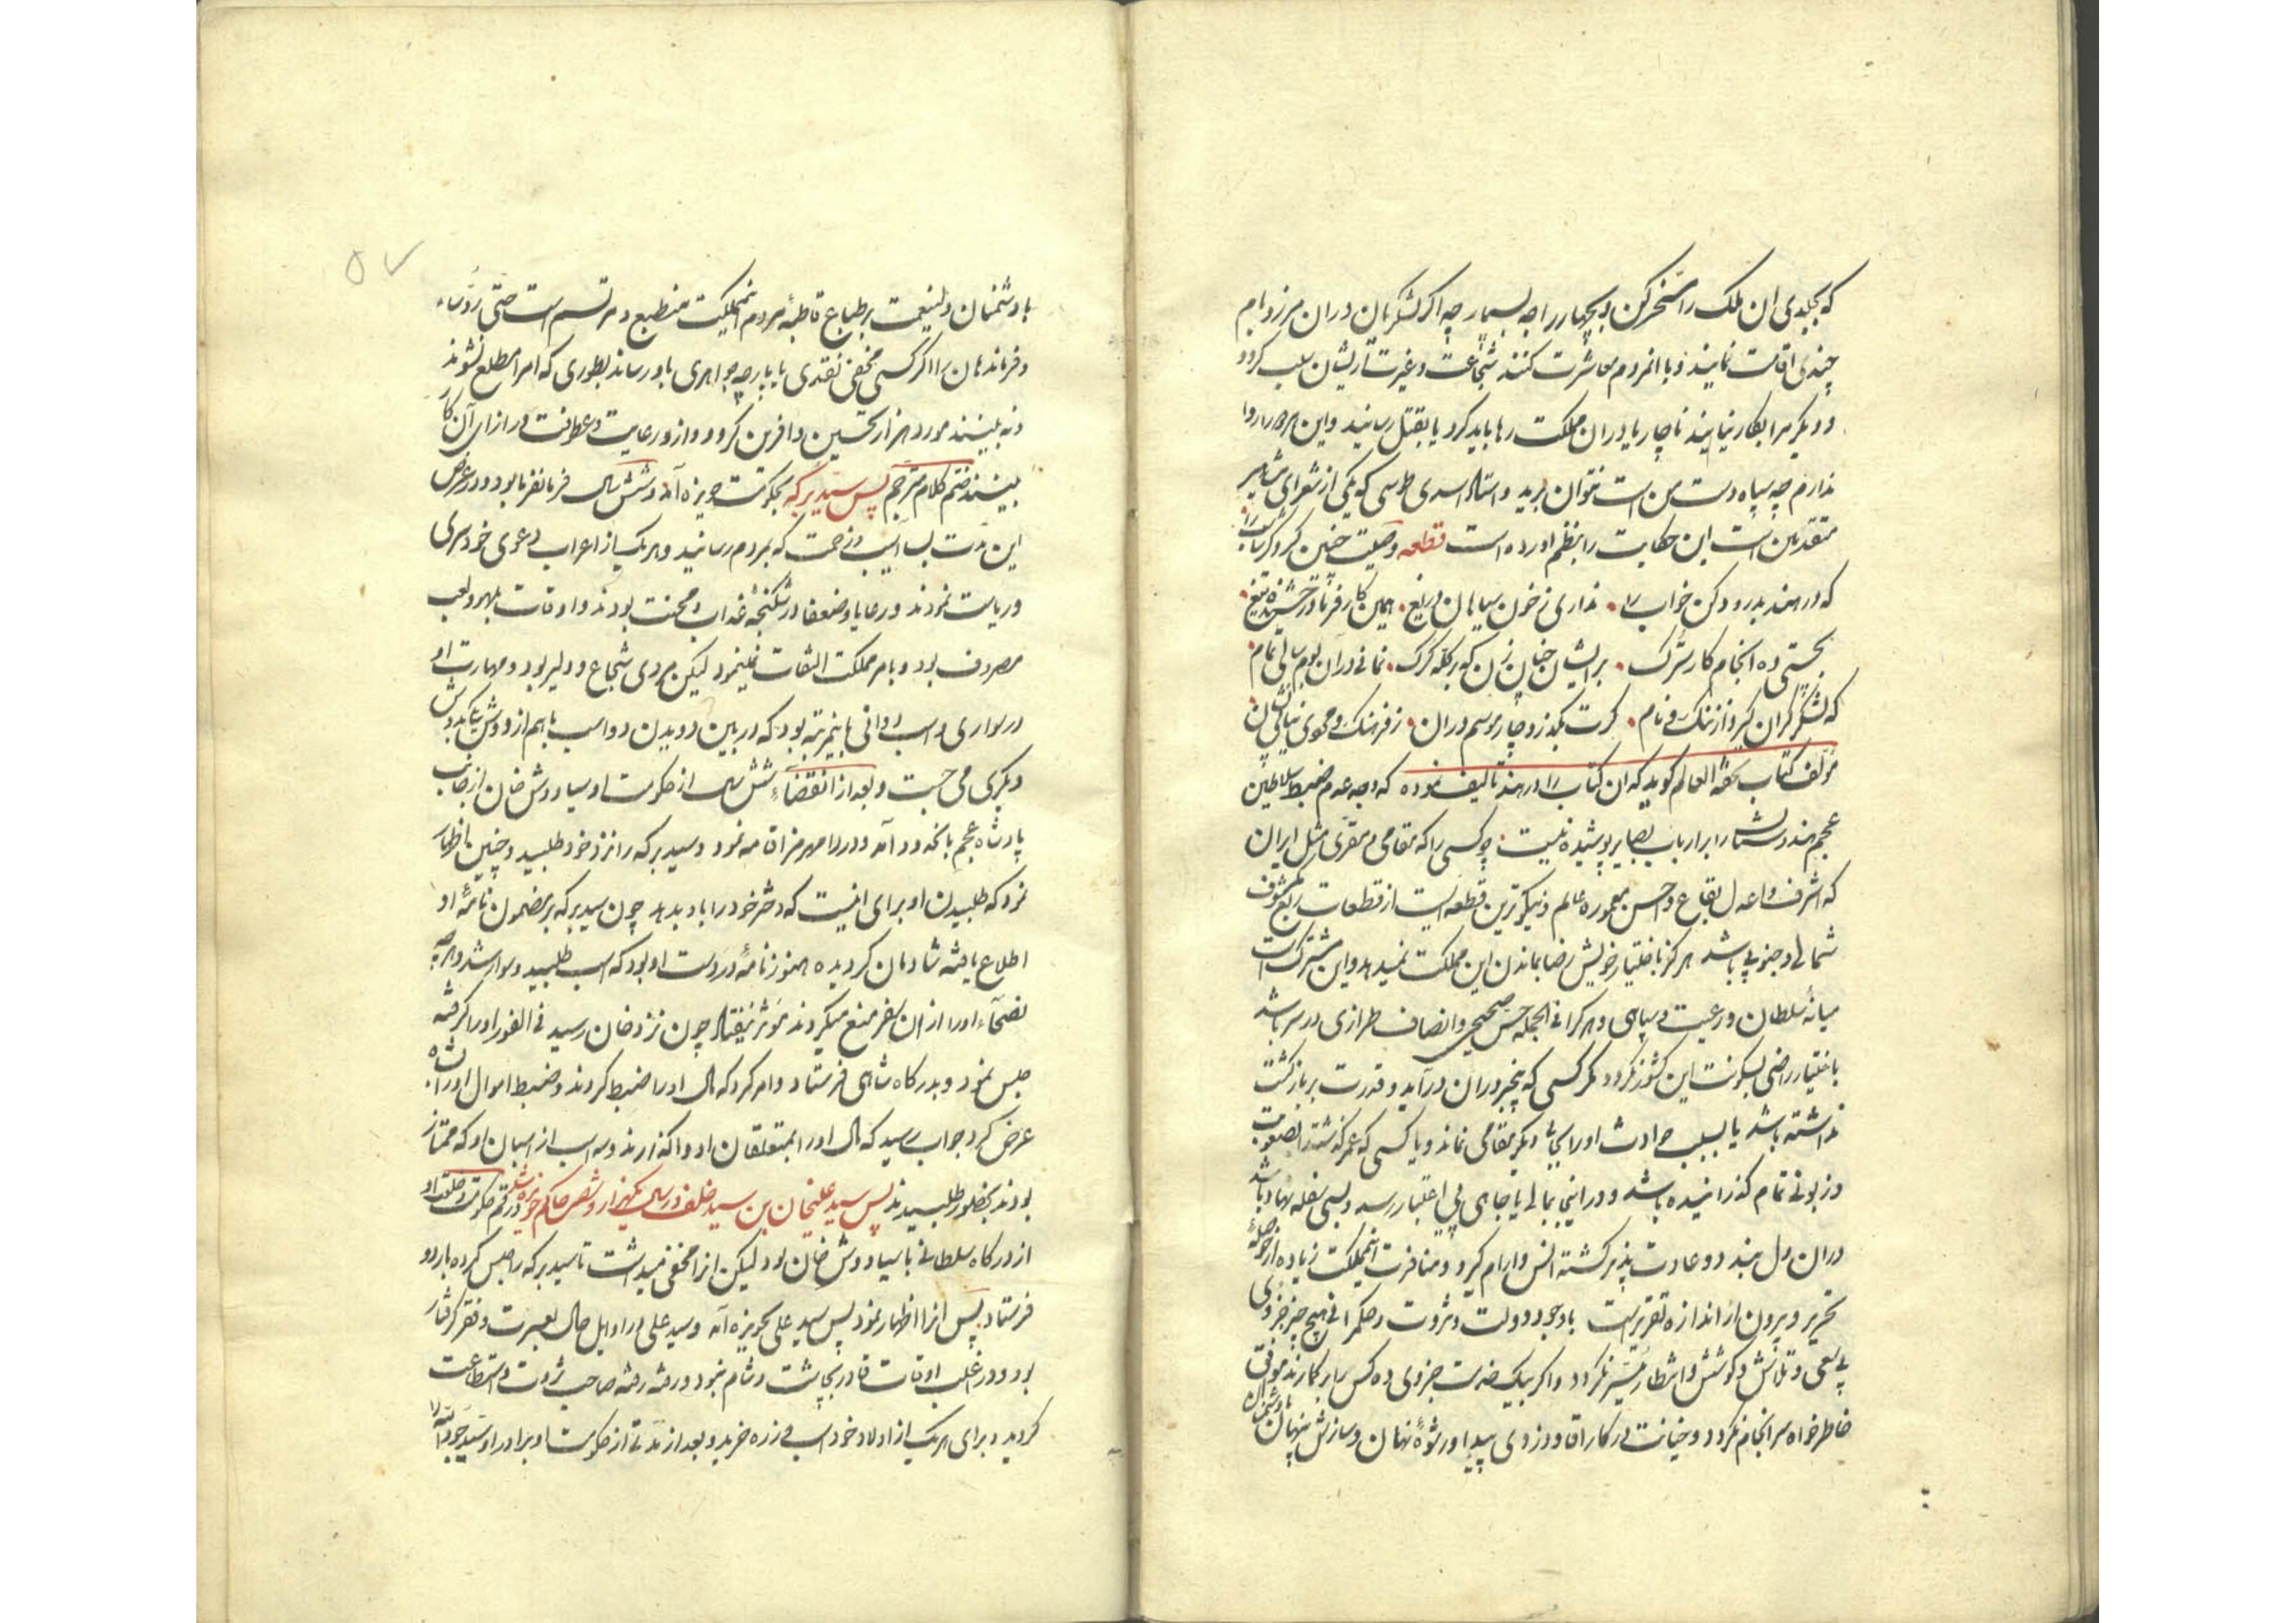 که بجلدی ان ملک را مسخر کن و بجیپال راجه بسپار چه اگر لشکریان دران مرز و بوم
چندی اقامت نمایند و با انمردم معاشرت کنند شجاعت و غیرت از ایشان سلب گردد
و دیگر مرا بکار نیایند ناچار یا دران مملکت رها باید کرد یا بقتل رسانید و این هر دو را روا
ندارم چه سپاه دست من است نتوان برید و استاد اسدی طوسی که یکی از شعرای مشاهیر
متقدمین است این حکایت را بنظم اورده است قطعه وصیت چنین کرد گرشاسب را
که در هند بدرود کن خواب را نداری ز خون سیاهان دریغ همین کار فرما درخشنده تیغ
بچستی ده انجام کار سترک بر ایشان چنان زن که بر گله گرگ نمانی در آن بوم سالی تمام
که لشکر گران گیرد از ننگ و نام گرت بگذرد چار موسم دران ز فرهنگ و مجوی نشان
مؤلف کتاب تحفة العالم گوید که ان کتاب را در هند تالیف نموده که وجه عدم ضبط سلاطین
عجم هندوستان را بر ارباب بصایر پوشیده نیست چه کسی را که مقامی و مقری مثل ایران
که اشرف و اعدل بقاع و احسن معموره عالم و نیکوترین قطعه ایست از قطعات ربع مسکون
شمالی و جنوبی باشد هرگز باختیار خویش رضا بماندن این مملکت نمیدهد و این مشترک است
میانه سلطان و رعیت و سپاهی و هر کرا فی الجمله حس صحیح و انصاف طرازی در سر باشد
باختیار راضی بسکونت این کشور نگردد مگر کسی که بیخبر دران درآید و قدرت بر بازگشت
نداشته باشد یا بسبب حوادث او را بجای دیگر مقامی نماند و یا کسی که عمر گذشته را بصعوبت
و زبونی تمام گذرانیده باشد و در اینجا بمالی یا جاهی بی اعتبار رسد و بسی سفله نهاد باشد
دران دل ببندد و عادت پذیر گشته انس و ارام گیرد و منافرت انمملکت زیاده از حوصله
تحریر و بیرون از اندازه تقریر است با وجود دولت و ثروت و حکمرانی هیچ چیز جزوی
بی سعی و تلاش و کوشش و انتظار میسر نگردد و اگر بیک خدمت جزوی ده کس را بر گمارند موافق
خاطرخواه سرانجام نگردد و خیانت در کار اقا و دزدی پیدا و رشوه نهان و سازش پنهان
با دشمنان ولینعمت بر طباع قاطبه مردم انمملکت منطبع و مرتسم است حتی رؤساء
و فرماندهان را اگر کسی مخفی نقدی یا پارچه جواهری باو رساند بطوری که امرا مطلع نشوند
و نه بینند مورد هزار تحسین و افرین گردد و از او رعایت و عطوفت در ازای آن کار
بینند ختم کلام مترجم پس سید برکه بحکومت حویزه آمد و شش سال فرمانفرما بود و در عرض
این مدت بسا اسیب و زحمت که بمردم رسانید و هر یک از اعراب دعوی خودسری
و ریاست نمودند و رعایا و ضعفا در شکنجه عذاب و محنت بودند و اوقات بلهو و لعب
مصروف بود و بامر مملکت التفات نمینمود لیکن مردی شجاع و دلیر بود و مهارت او
در سواری و اسب دوانی باینمرتبه بود که در بین دویدن دو اسب با هم از دوش یکی بدوش
دیگری می جست و بعد از انقضاء شش سال از حکومت او سیاووش خان از جانب
پادشاه عجم بانحدود آمد و در رامهرمز اقامه نمود و سید برکه را نزد خود طلبید و چنین اظهار
نمود که طلبیدن او برای اینست که دختر خود را باو بدهد چون سید برکه بر مضمون نامه او
اطلاع یافته شادمان گردیده هنوز نامه در دست او بود که اسب طلبید و سوار شد و هر چه
نصحاء او را از ان سفر منع میکردند مؤثر نیفتاد چون نزد خان رسید فی الفور او را گرفته
حبس نمود و بدرگاه شاهی فرستاد و امر کرد که مال او را ضبط کردند و ضبط اموال او را بشاه
عرض کرد جواب رسید که مال او را بمتعلقان او واگذارند و سه اسب از اسبان او که ممتاز
بودند بحضور طلبیدند پس سید علیخان بن سید خلف در سال یکهزار و شصت حاکم حویزه شد و رقم حکومت و خلعت او
از درگاه سلطانی با سیاووش خان بود لیکن انرا مخفی میداشت تا سید برکه را حبس کرده باردو
فرستاد پس انرا اظهار نمود پس سید علی بحویزه آمد و سید علی در اوایل حال بعسرت و فقر گرفتار
بود و در اغلب اوقات قادر بچاشت و شام نبود و رفته رفته صاحب ثروت و استطاعت
گردید و برای هر یک از اولاد خود اسب و زره خرید و بعد از مدتی از حکومت او برادر او سید جود الله